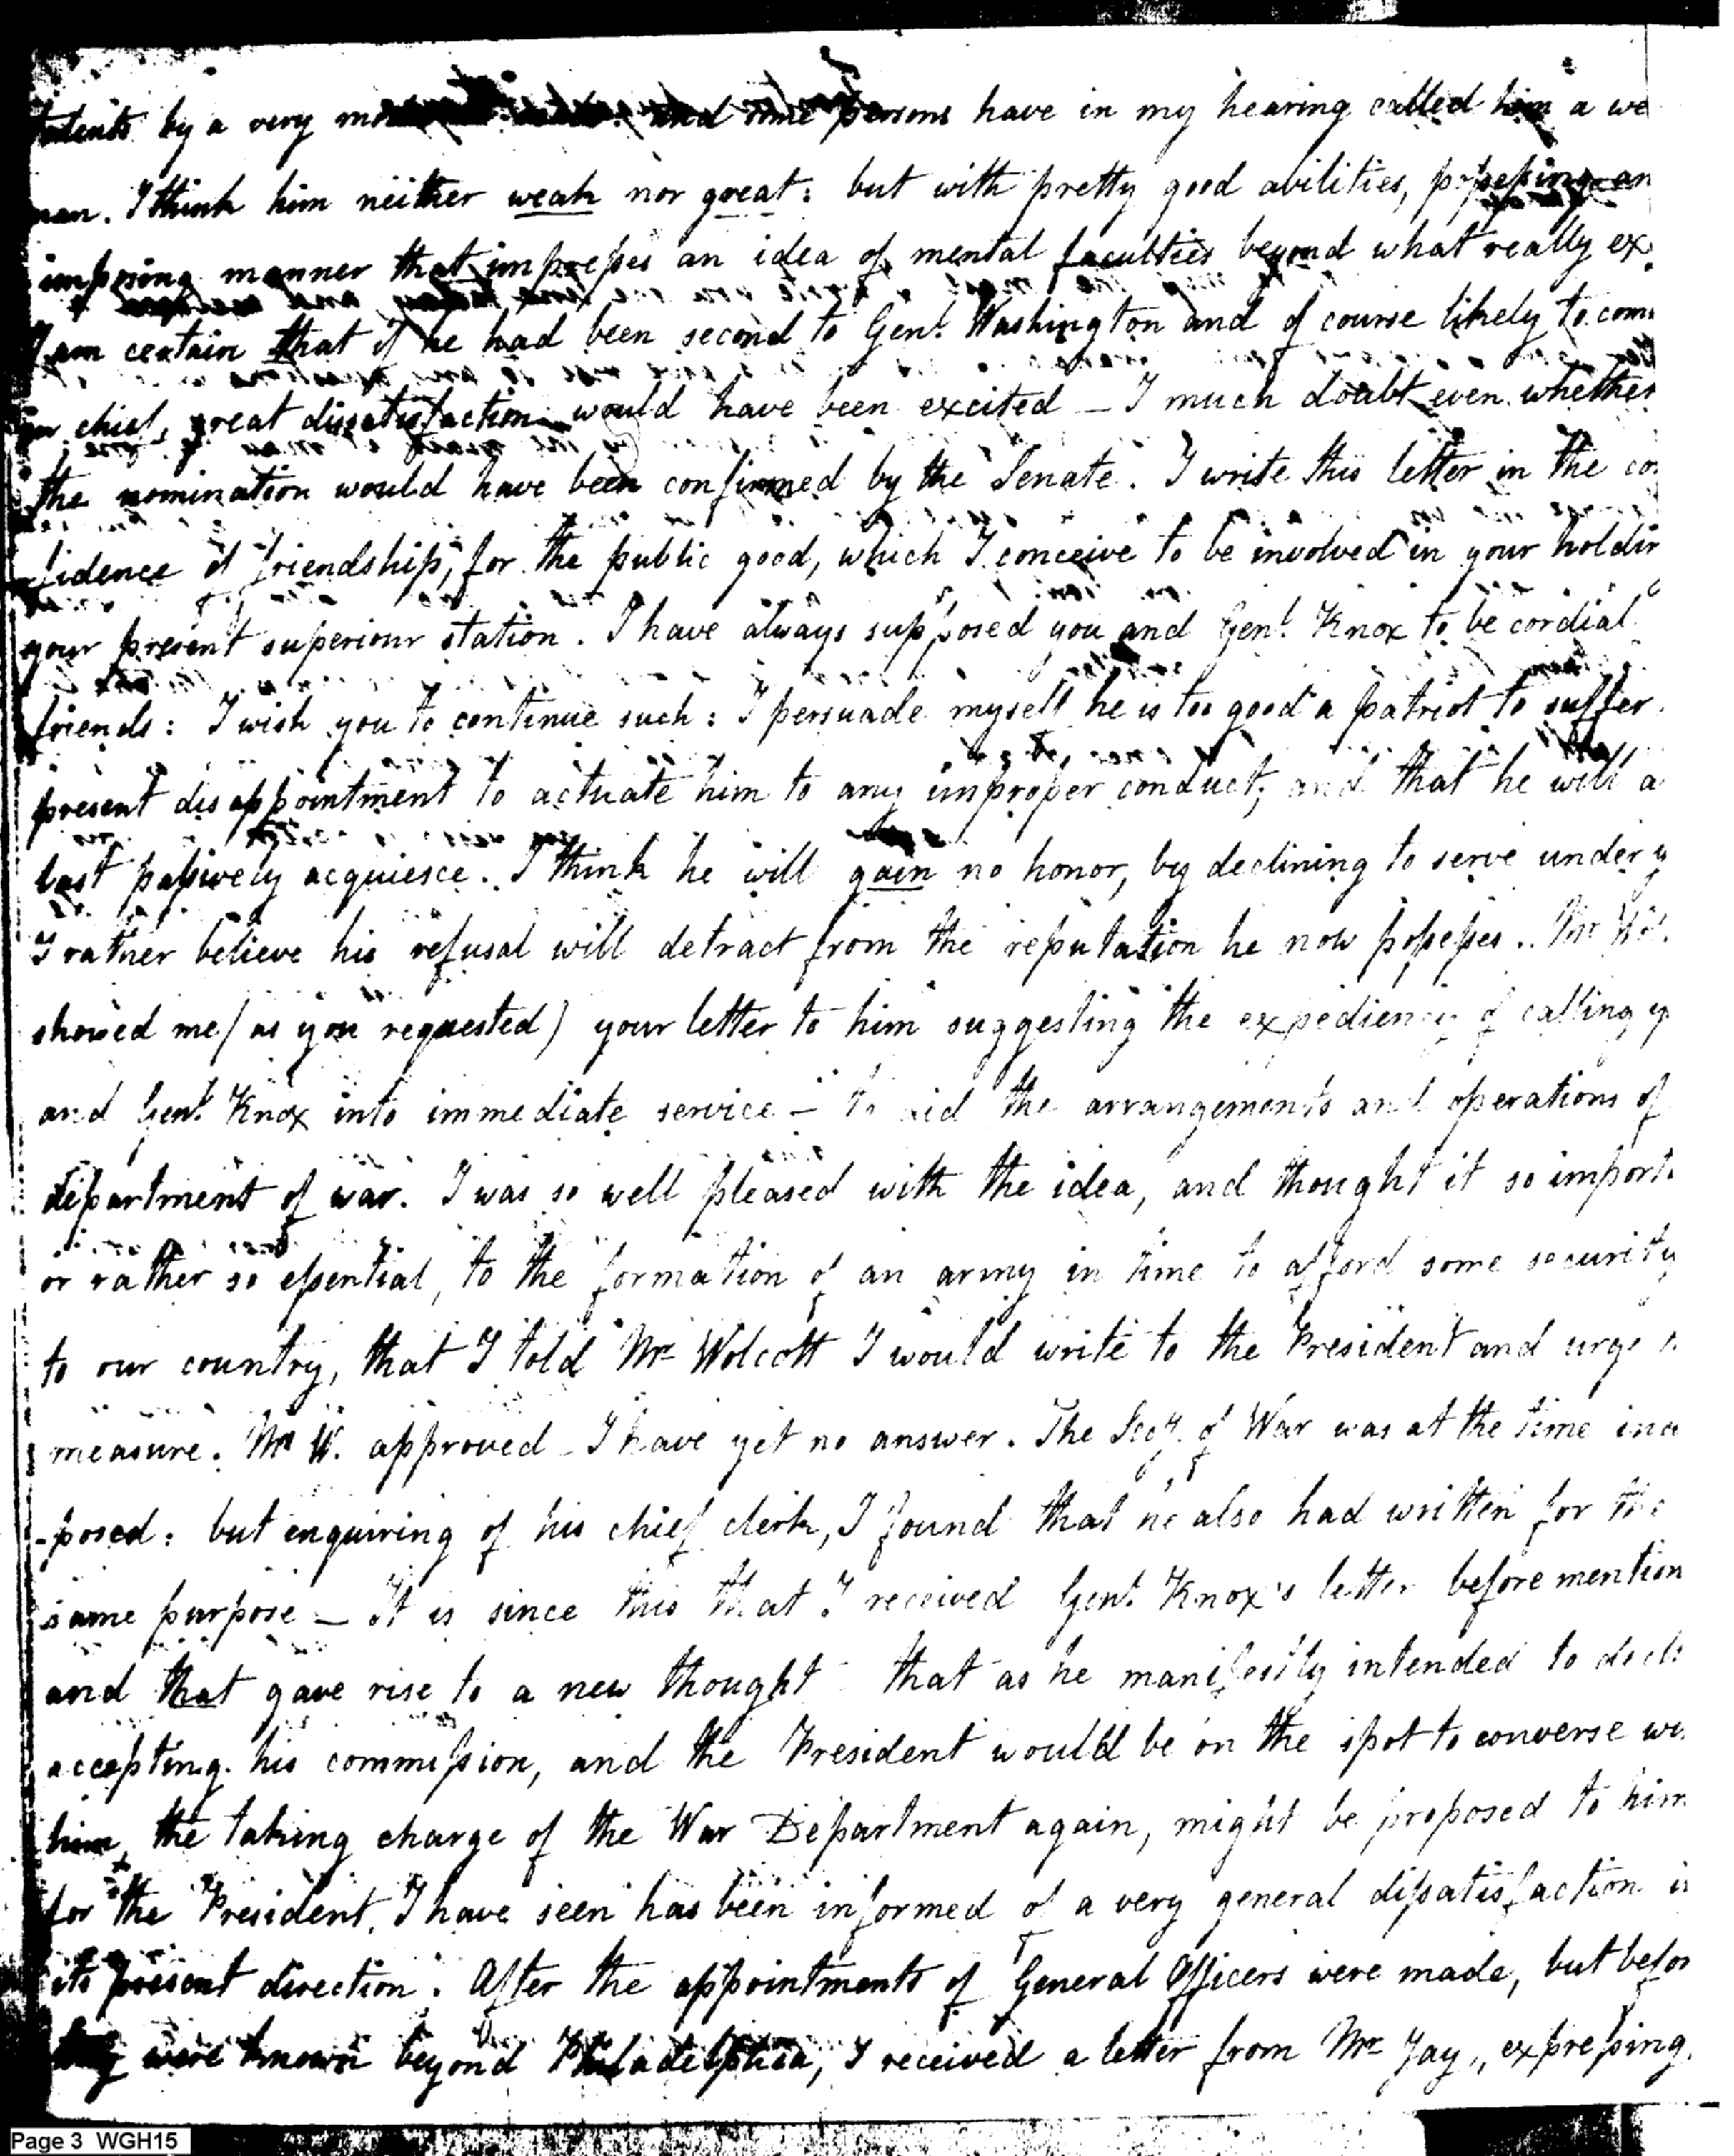 talents by a very and some persons have in my hearing called him a we
man. I think him neither weak nor great: but with pretty good abilities, possessing an
imposing manner that impresses an idea of mental faculties beyond what really ex
I am certain that if he had been second to Genl. Washington and of course likely to com
in chief, great dissatisfaction would have been excited — I much doubt even whether
the nomination would have been confirmed by the Senate. I write this letter in the con
fidence of friendship, for the public good, which I conceive to be involved in your holdin
your present superiour station. I have always supposed you and Genl. Knox to be cordial
friends: I wish you to continue such: I persuade myself he is too good a patriot to suffer
present disappointment to actuate him to any improper conduct; and that he will a
last passively acquiesce. I think he will gain no honor, by declining to serve under y
I rather believe his refusal will detract from the reputation he now possesses. Mr Wol
showed me (as you requested) your letter to him suggesting the expediency of calling y
and Genl. Knox into immediate service — to aid the arrangements and operations of
department of war. I was so well pleased with the idea, and thought it so importa
or rather so essential, to the formation of an army in time to afford some security
to our country, that I told Mr Wolcott I would write to the President and urge
measure. Mr W. approved — I have yet no answer. The Secy. of War was at the time
-posed: but enquiring of his chief clerk, I found that he also had written for the
same purpose — It is since this that I received Genl. Knox's letter before mention
and that gave rise to a new thought — that as he manifestly intended to decli
accepting his commission, and the President would be on the spot to converse wi
him, the taking charge of the War Department again, might be proposed to him
for the President, I have seen has been informed of a very general dissatisfaction in
its present direction. After the appointments of General Officers were made, but befor
they were known beyond Philadelphia, I received a letter from Mr Jay, expressing
Page 3 WGH15